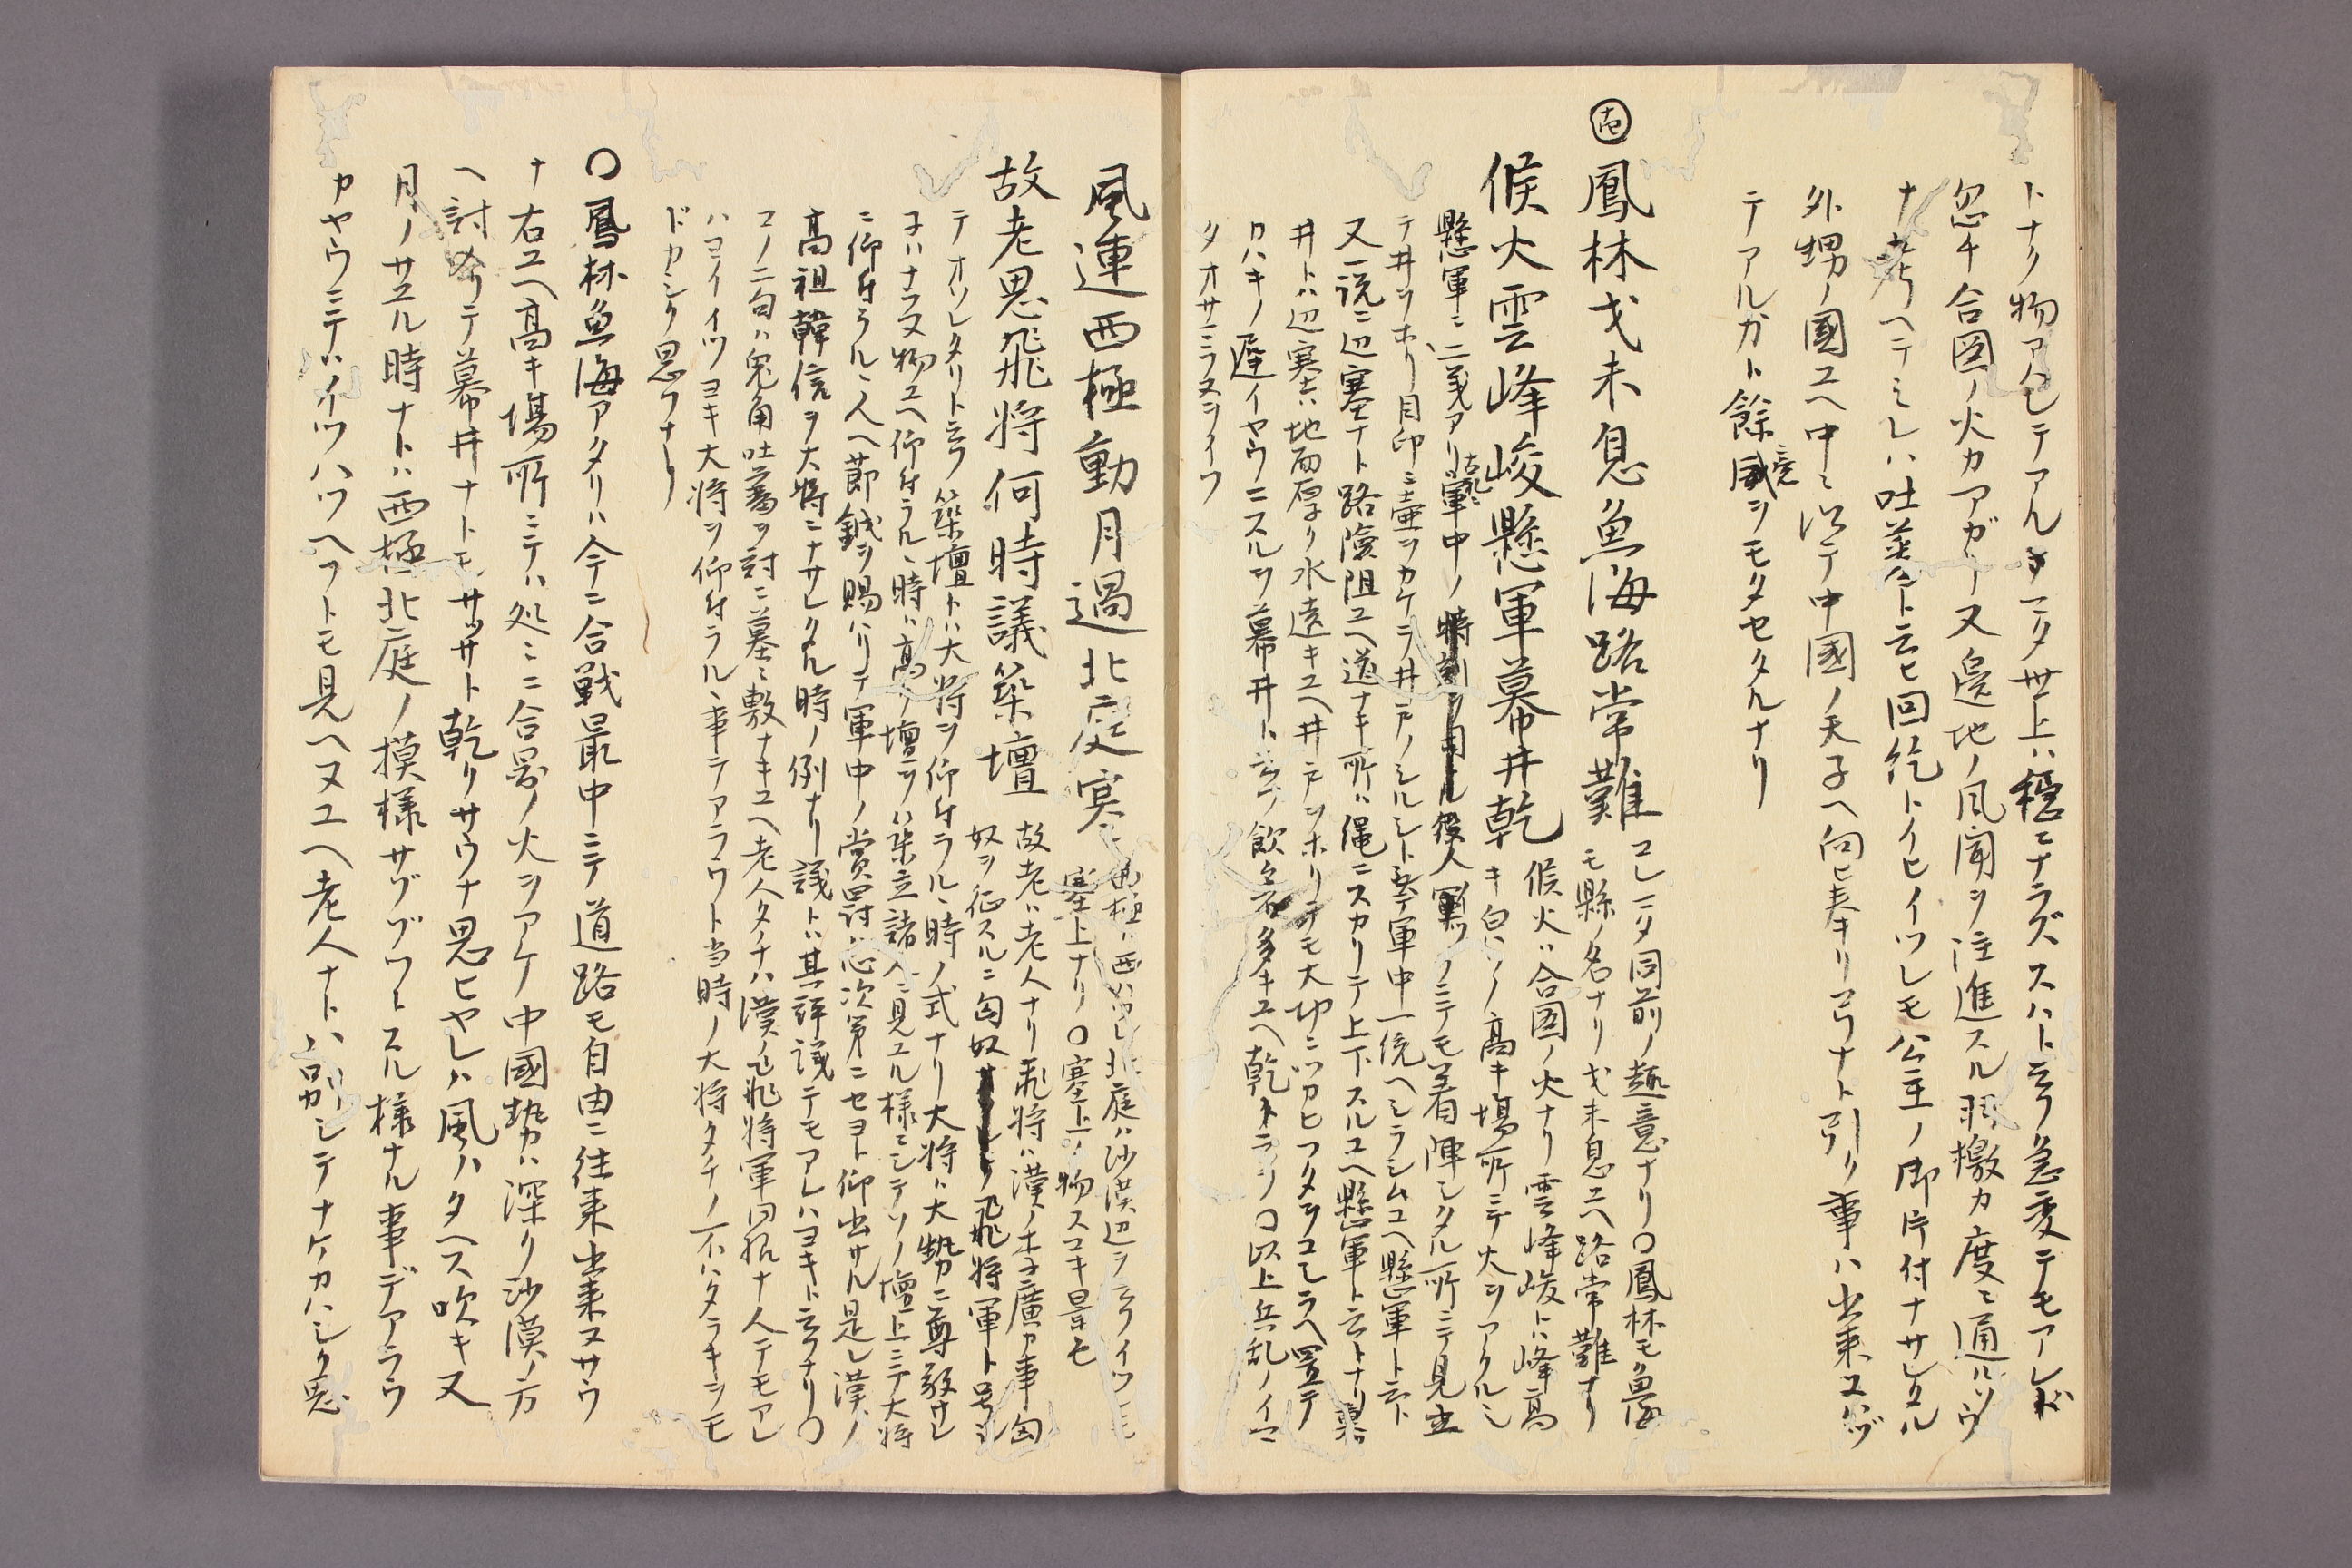 トナク物アヘシテアルマニタ世上ハ穏ニナラズスハト云フ急変テモアレバ
忽チ合図ノ火カアガリ又邊地ノ風聞ヲ注進スル羽檄カ度ミ通ルソウ
ナ考ヘテミレハ吐蕃ト云ヒ回紇トイヒイツレモ公主ノ御片付ナサレタル
外甥ノ國ユヘ中ミ以テ中國ノ天子ヘ向ヒ奉リ弓ナト引ク事ハ出来ユカヅ
テアルカト餘意ヲモタセタルナリ
鳳林戈未息魚海路常難
コレマタ同前ノ趣意ナリ〇鳳林モ魚海
モ縣ノ名ナリ戈未息ユヘ路常難ナリ
候火雲峰峻懸軍幕井乾
候火ハ合図ノ火ナリ雲峰峻トハ峰高
キ白ハノ高キ場所ニテ火ヲアクルシ
懸軍ニ二義アリ軍中ノ役人軍ノニテモ着陣シタル所ニテ見立
テ井ヲホリ目印ニ壷ヲカケテ井戸ノシルシト云テ軍中一統ヘシラシムユヘ懸軍ト云ト
又一説ニ辺塞ナト路險阻ユヘ道ナキ所ハ縄ニスカリテ上下スルユヘ懸軍ト云トナリ幕
井トハ辺塞ハ地面厚ク水遠キユヘ井戸ヲホリテモ大切ニツカヒフタヲコシラヘ置テ
カハキノ遅イヤウニスルヲ幕井ト云フ飲者多キユヘ乾トテリ〇以上兵乱ノイマ
タオサマラヌヲイフ
風連西極動月過北庭寒
西極ハ西ハツレ北庭ハ沙漠辺ヲ云フイツレモ
塞上ナリ〇塞上ノ物スコキ景也
故老思飛将何時議築壇
故老ハ老人ナリ飛将ハ漢ノ李廣カ事匈
奴ヲ征スルニ匈奴飛将軍ト号シ
テオソレタリト云フ築壇トハ大将ヲ仰付ラル時ノ式ナリ大将ハ大勢ニ尊敬サレ
子ハナラヌ物ユヘ仰付ラルヽ時ハ高ク壇ヲハ築立諸人ニ見ユル様ニシテソノ壇上ニテ大将
ニ仰付ラルヽ人ヘ節鉞ヲ賜ハリテ軍中ノ賞罸心次第ニセヨト仰出サル是レ漢ノ
高祖韓信ヲ大将ニナサレタル時ノ例ナリ議トハ其評議テモアレハヨキト云フナリ〇
コノ二句ハ兔角吐蕃ヲ討ニ墓ミ敷ナキユヘ老人タチハ漢ノ飛将軍同然ナ人テモアレ
ハヨイイツヨキ大将ヲ仰付ラルヽ事テアラウト当時ノ大将タチノ不ハタラキヲモ
ドカシク思フナリ
〇鳳林魚海アタリハ今ニ合戦最中ニテ道路モ自由ニ往来出来ヌサウ
ナ右ユヘ高キ場所ニテハ処ミニ合圖ノ火ヲアケ中國勢ハ深ク沙漠ノ方
ヘ討入テ幕井ナトモサッサト乾リサウナ思ヒヤレハ風ハタヘス吹キ又
月ノサユル時ナトハ西極北庭ノ摸様サゾゾウトスル様ナル事デアラウ
カヤウニテハイツハツヘフトモ見ヘヌユヘ老人ナトハ別シテナケカハシク思